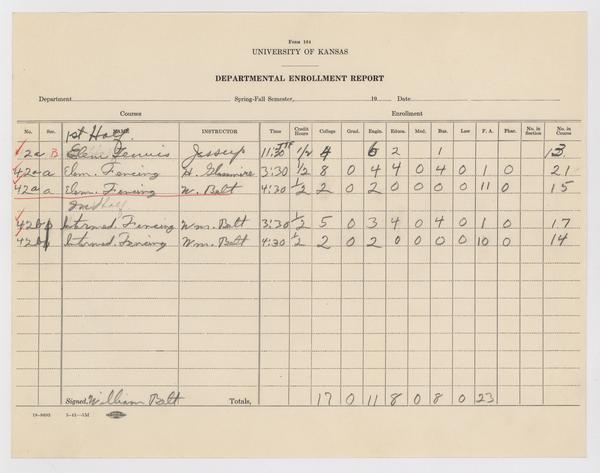 Form 104
UNIVERSITY OF KANSAS
DEPARTMENTAL ENROLLMENT REPORT
Department Spring-Fall Semester, 19 Date
Courses Enrollment
No. Sec. NAME INSTRUCTOR Time Credit Hours College Grad. Engin. Educa. Med. Bus. Law F. A. Phar. No. in Section No. in Course
1st Half
2a B Elem Tennis Jessup 11:30 TTF 1/2 4 6 2 1 13
42a a Elem. Fencing H. 3:30 1/2 8 0 4 4 0 4 0 1 0 21
42a a Elem. Fencing W. Balt 4:30 1/2 2 0 2 0 0 0 0 11 0 15
2nd Half
42b Intermed. Fencing Wm. Balt 3:30 1/2 5 0 3 4 0 4 0 1 0 17
42b Intermed. Fencing Wm. Balt 4:30 1/2 2 0 2 0 0 0 0 10 0 14
Signed, William Balt Totals, 17 0 11 8 0 8 0 23
18-8693 5-41-5M